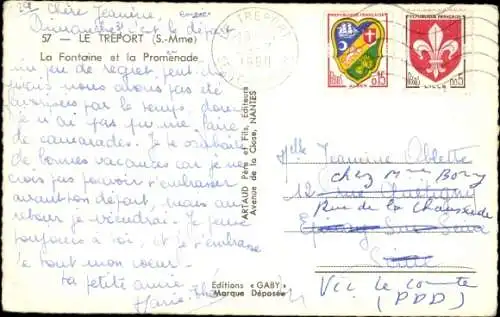 Chère Jeannine,
Dimanche c'est le départ
57 - LE TRÉPORT (S.-Mme)
La Fontaine et la Promenade
un peu de regret peut-être
mais nous avons pas été
favorisés par le temps donc
je n'ai pas pu me faire
de camarades. Je te souhaite
de bonnes vacances car je ne
crois pas pouvoir t'embrasser
avant ton départ, mais au
retour je viendrai. Je pense
toujours à toi, et je t'embrasse
de tout mon coeur.
Ta petite amie
Marie
ARTAUD Père et Fils, Editeurs
Avenue de la Close, NANTES
Editions "GABY"
Marque Déposée
LE TREPORT
REPUBLIQUE FRANÇAISE
POSTES
ALGER
0,15
REPUBLIQUE FRANÇAISE
POSTES
LILLE
0,05
Melle Jeannine
chez Mme Bory
12
Rue de la Chaussée
Epinay sur Seine
Seine
Vic le Comte
(PDD)